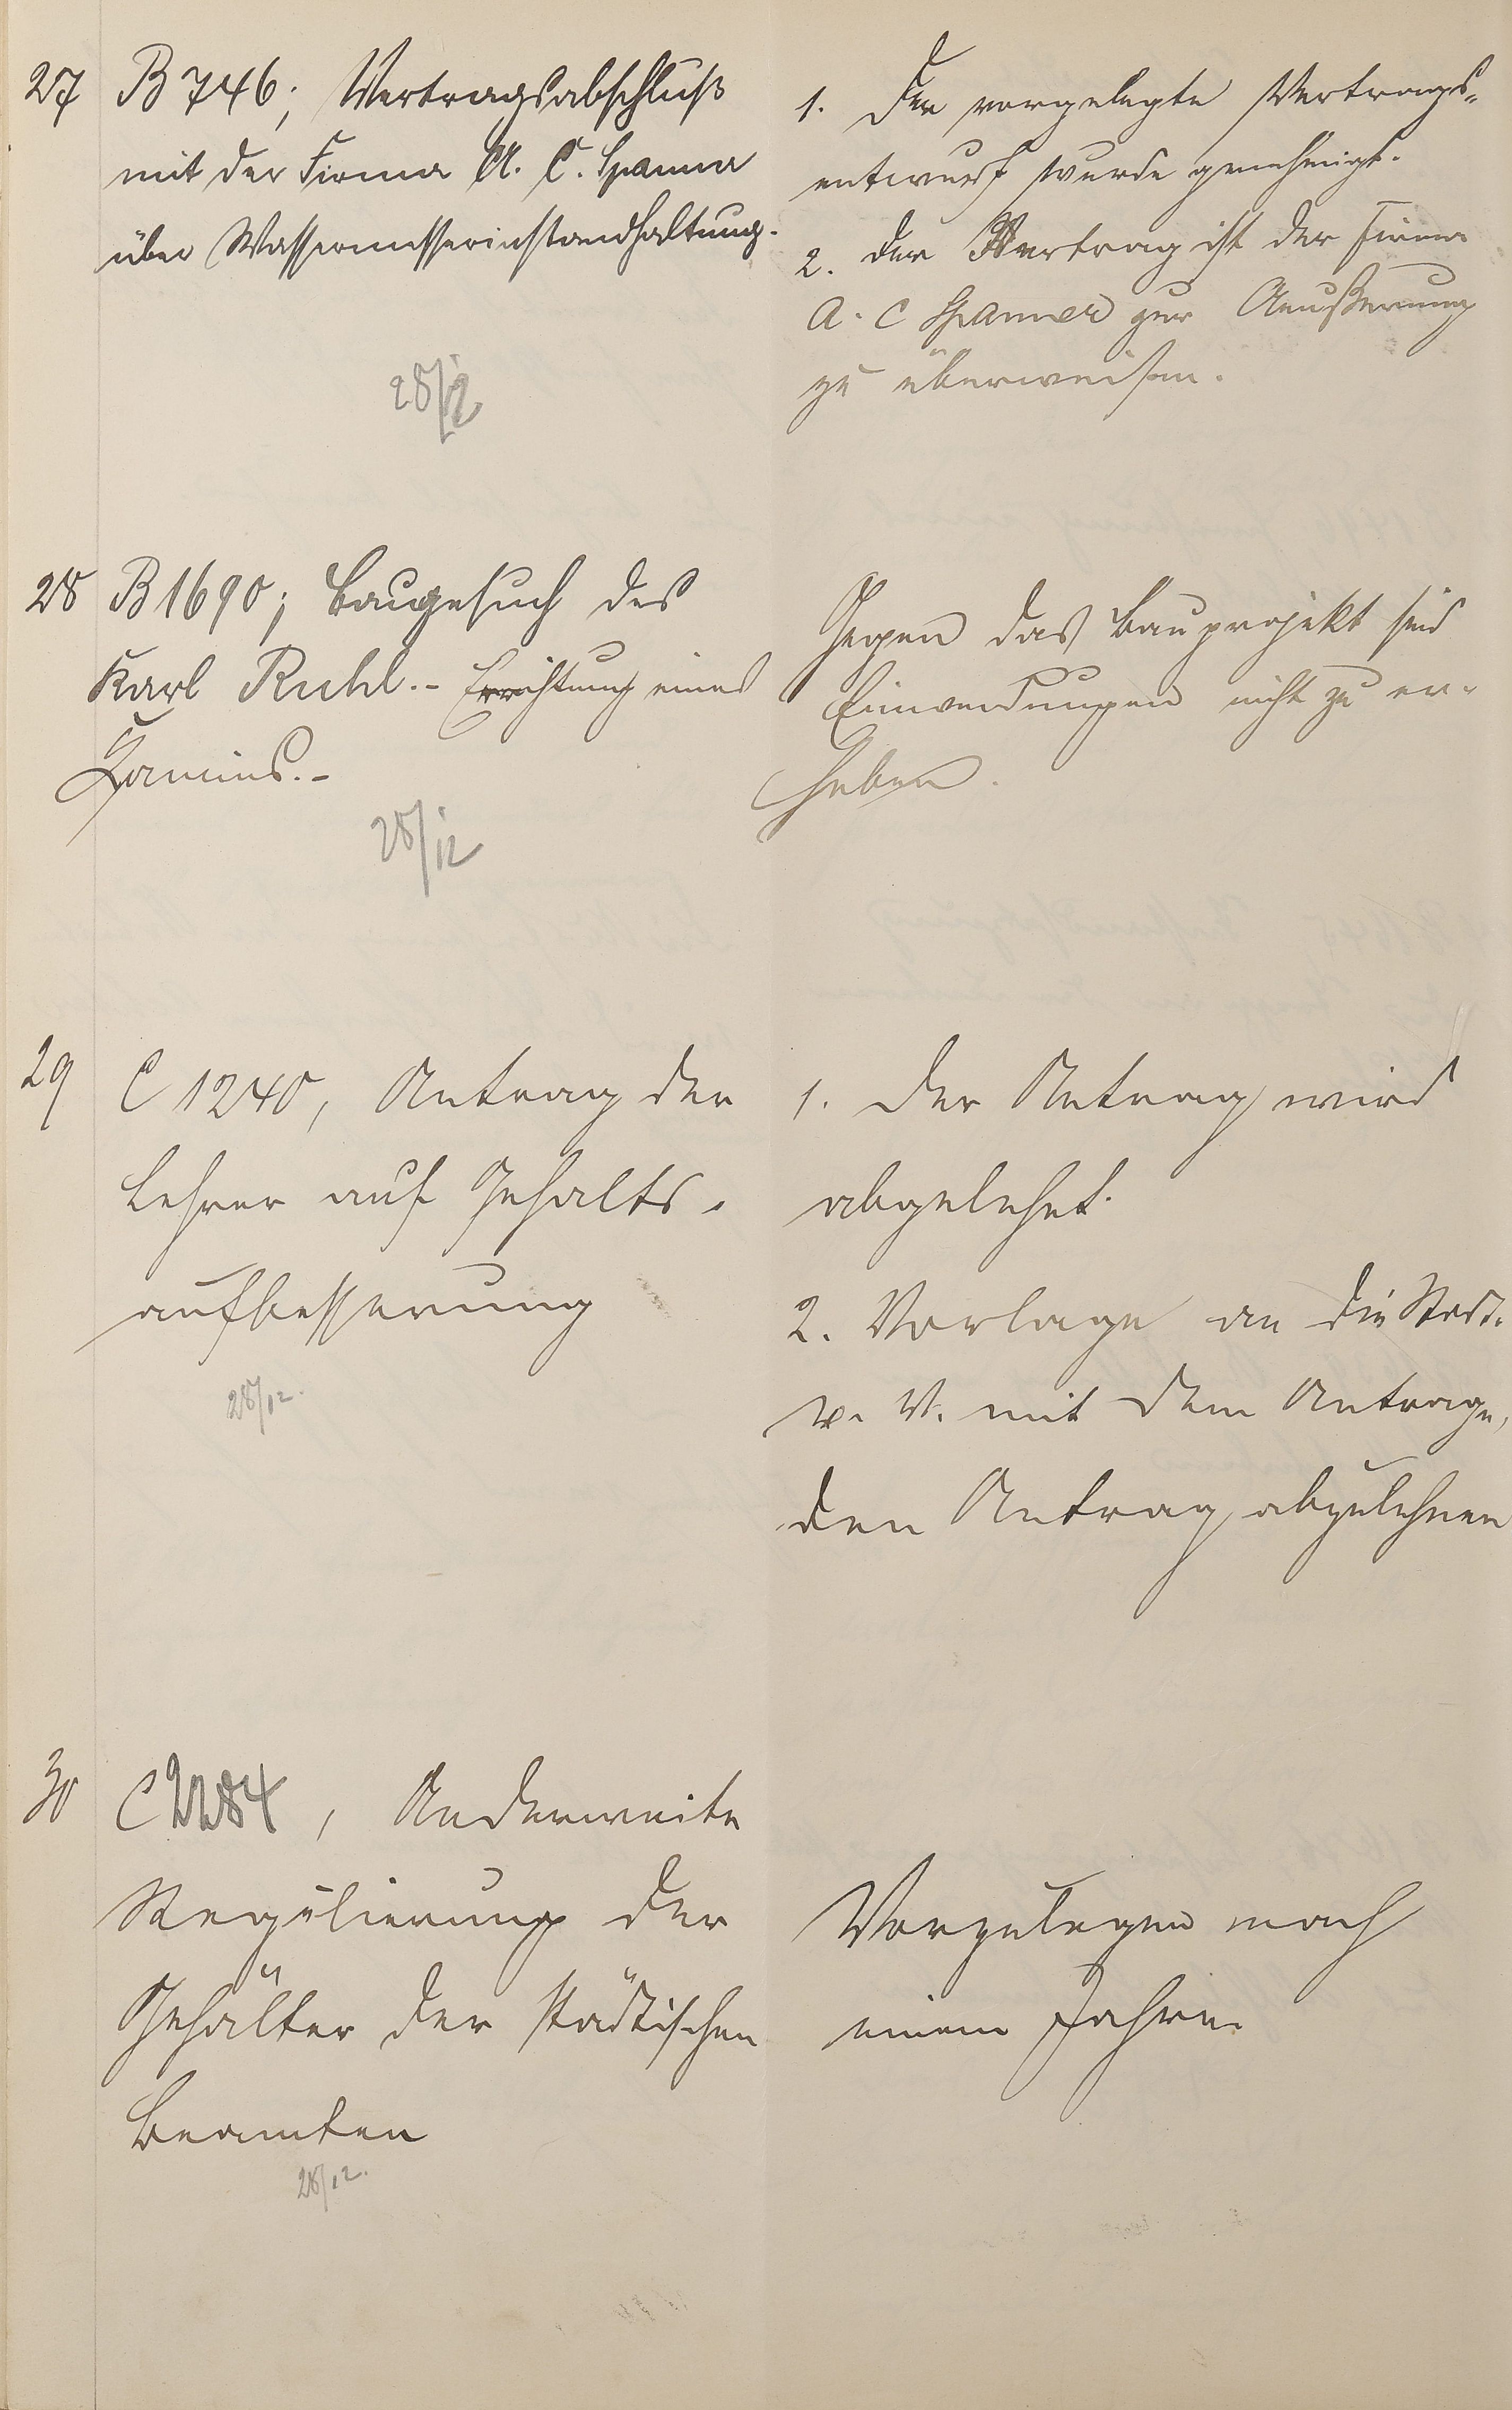 27
B 746; Vertragsabschluß
mit der Firma A. C. Spanner
über Wassermesserinstandhaltung.
28/12
1. Der vorgelegte Vertrags-
entwurf wurde genehmigt.
2. Der Vertrag ist der Firma
A. C Spanner zur Aeußerung
zu überweisen.
28
B 1690; Baugesuch des
Karl Ruhl.- Errichtung eines
Kamins.-
28/12
Gegen das Bauprojekt sind
Einwendungen nicht zu er-
heben.
29
C 1240, Antrag der
Lehrer auf Gehalts-
aufbesserung
28/12.
1. Der Antrag wird
abgelehnt.
2. Vorlage an die Stadt.
v. V. mit dem Antrage,
den Antrag abzulehnen
30
C 2284, Anderweite
Regulierung der
Gehälter der städtischen
Beamten
28/12.
Vorzulegen nach
einem Jahre.